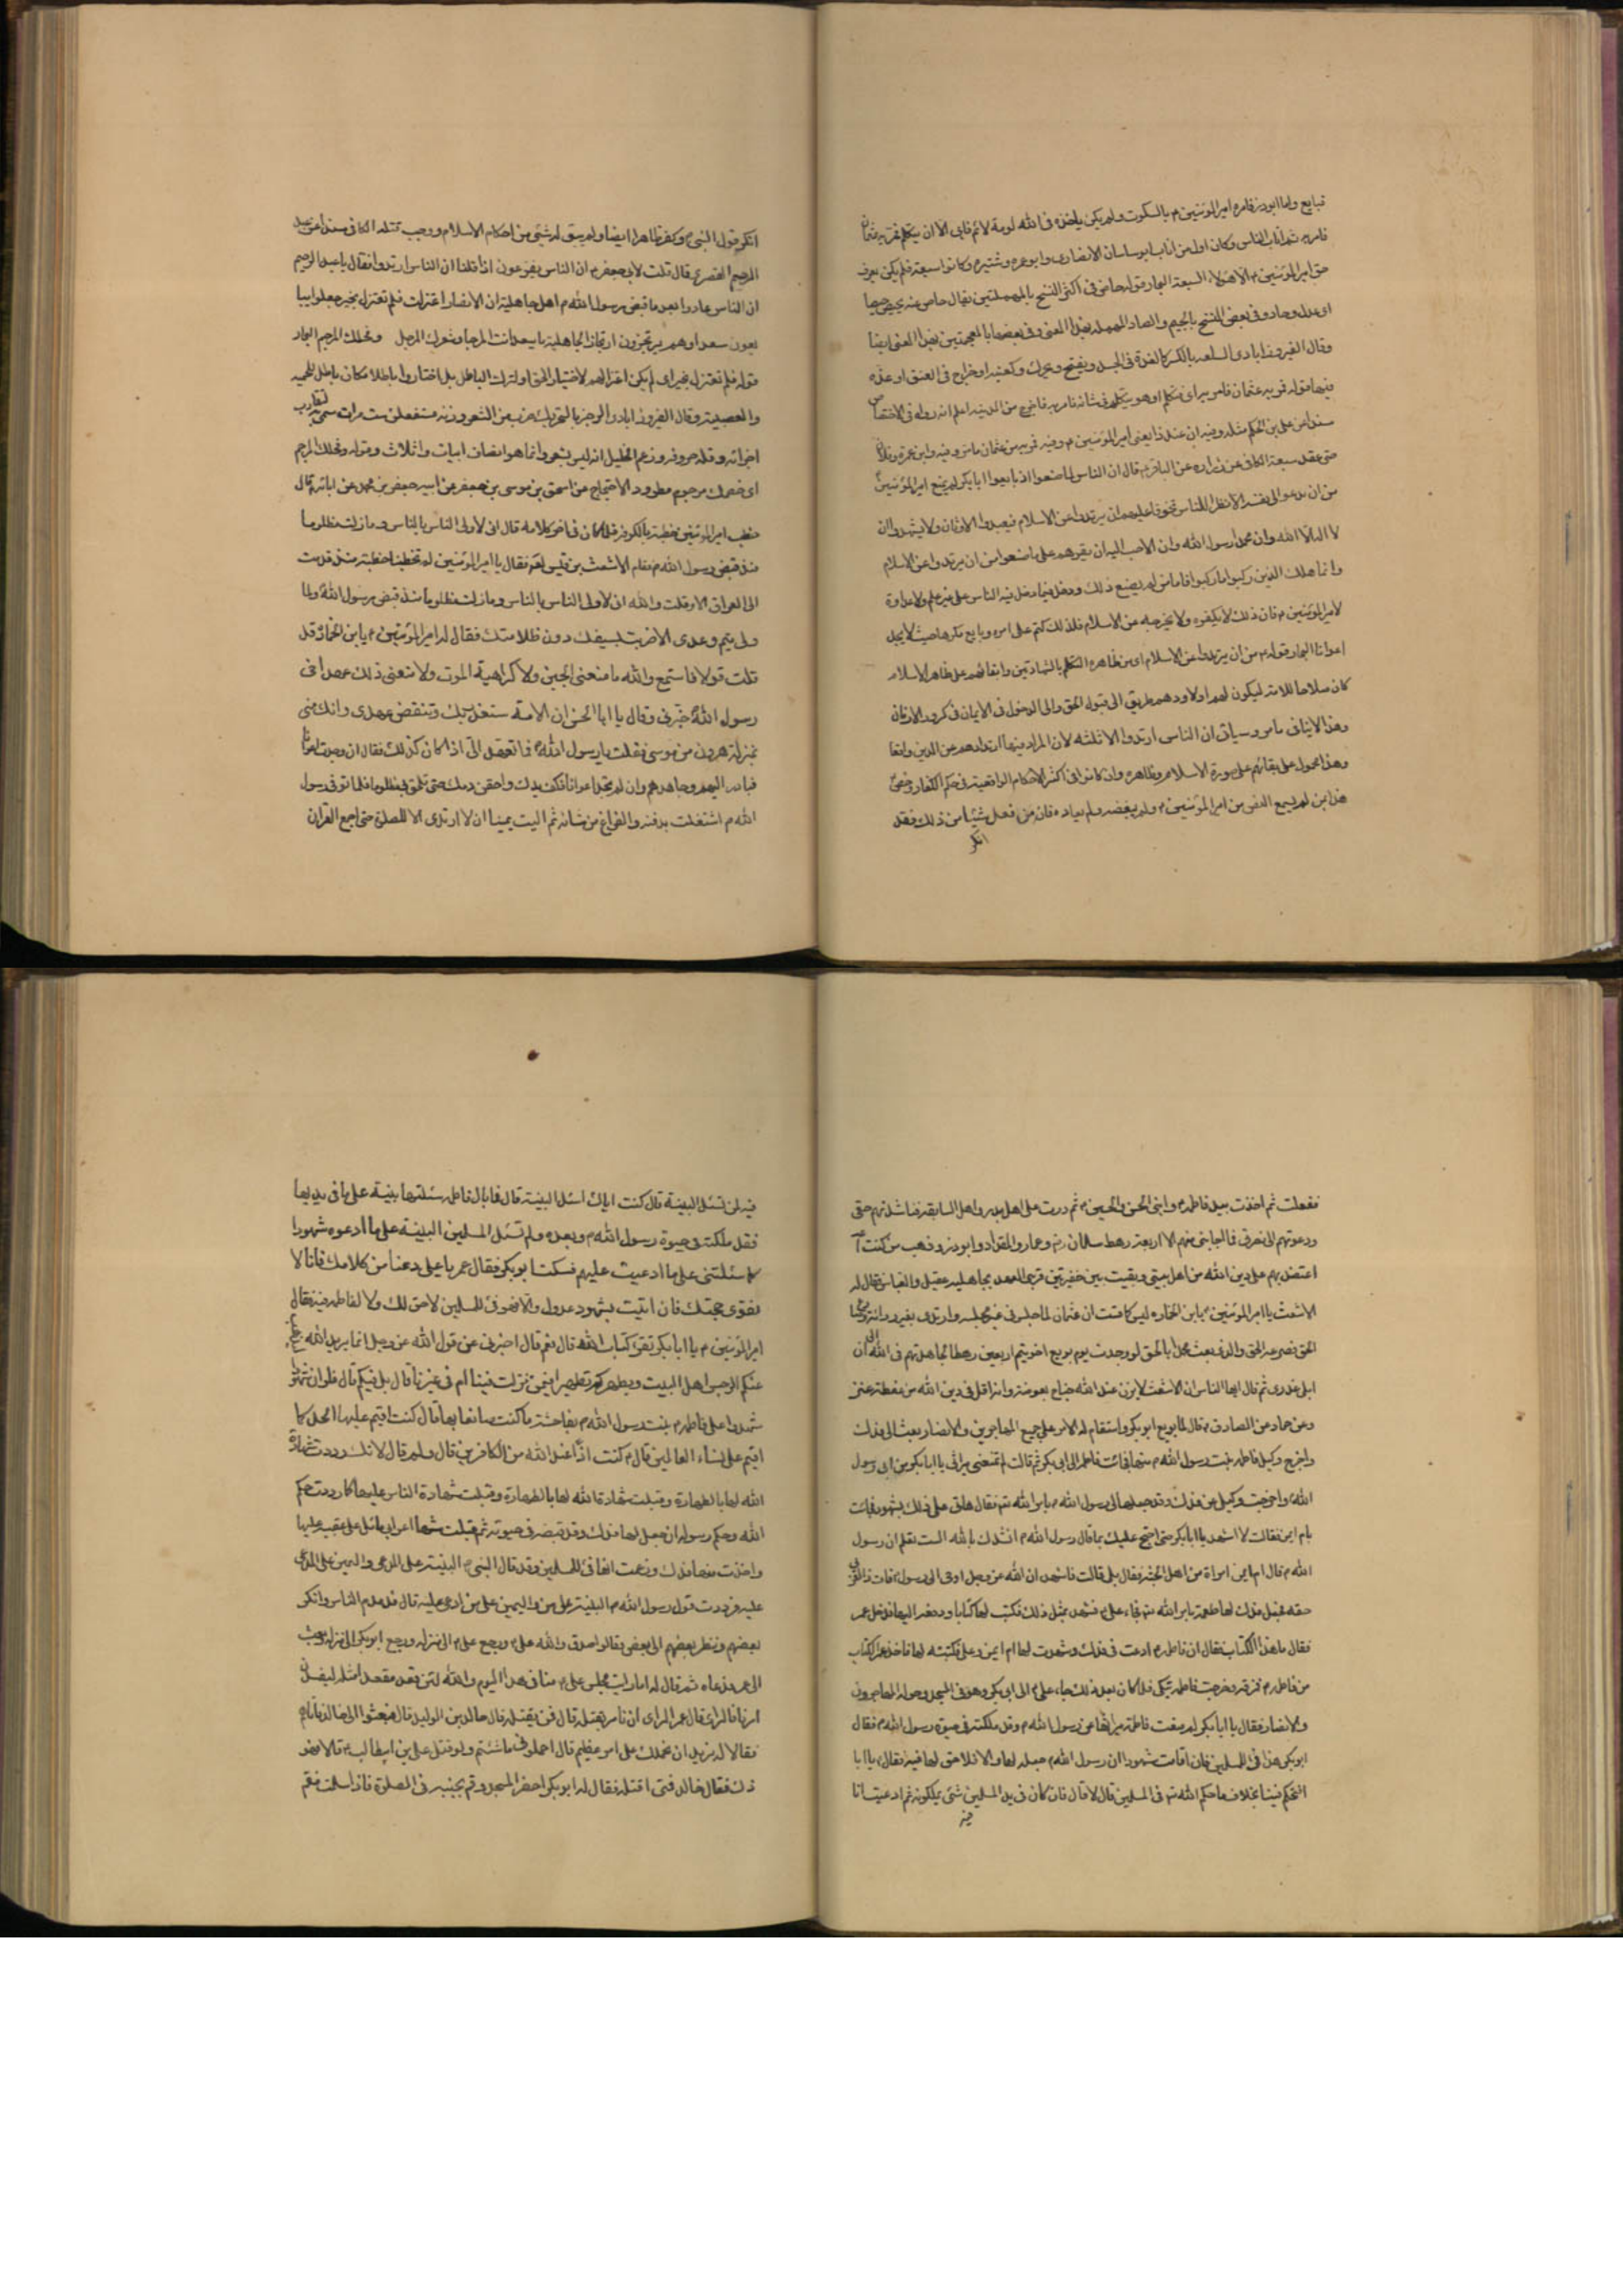 فبايع واما ابوذر فامره امير المؤمنين م بالسكوت ولم يكن ياخذه فى الله لومة لائم فابى الا ان يتكلم فمر به عثمان
فامر به ثم اناب الناس وكان اول من اناب ابوساسان الانصارى وابو عمره وشتيره وكانوا سبعة فلم يكن يعرف
حق امير المؤمنين م الا هؤلاء السبعة البحار قوله حاص فى اكثر النسخ بالمهملتين يقال حاص عنه يحيص حيصا
اى عدل وحاد وفى بعض النسخ بالجيم والصاد المهملة بهذا المعنى وفى بعضها بالمعجمتين بهذا المعنى ايضا
وقال الفيروزابادى السلعة بالكسر كالغدة فى الجسد ويفتح ويحرك وكعنبة او خراج فى العنق او غدة
فيها قوله فمر به عثمان فامر به اى يتكلم او هو يتكلم فى شانه فامر به فاخرج من المدينة اعلم انه رواه فى الاختصاص
سندا عن على بن الحكم مثله وفيه ان عند ذا يعنى امير المؤمنين م وفيه فمر به من عثمان ما مر وفيه وابو عمرة وفلان
حتى عقد سبعة الكافى عن زرارة عن الباقر م قال ان الناس لما صنعوا اذ بايعوا ابا بكر لم يمنع امير المؤمنين
من ان يدعو الى نفسه الا نظرا للناس تخوفا عليهم ان يرتدوا عن الاسلام فيعبدوا الاوثان ولا يشهدوا ان
لا اله الا الله وان محمدا رسول الله وان الاحب اليه ان يقرهم على ما صنعوا من ان يرتدوا عن الاسلام
وانما هلك الذين ركبوا ما ركبوا فاما من لم يصنع ذلك ودخل فيما دخل فيه الناس على غير علم ولا عداوة
لامير المؤمنين م فان ذلك لا يكفره ولا يخرجه عن الاسلام فلذلك كتم على امره وبايع مكرها حيث لا يجد
اعوانا البحار قوله م من ان يرتدوا عن الاسلام اى من ظاهره التكلم بالشهادتين وابقائهم على ظاهر الاسلام
كان صلاحا للامة ليكون لهم او لاولادهم طريق الى قبول الحق والى الدخول فى الايمان فى كرور الازمان
وهذا لا ينافى ما مر وسياتى ان الناس ارتدوا الا ثلثه لان المراد فيها ارتدادهم عن الدين واقعا
وهذا محمول على بقائهم على صورة الاسلام وظاهره وان كانوا فى اكثر الاحكام الواقعية فى حكم الكفار وخص
هذا بمن لم يسمع النص من امير المؤمنين م ولم يبغضه ولم يعاده فان من فعل شيئا من ذلك فقد
انكر
انكر قول النبى وكفر ظاهرا ايضا ولم يبق له شئ من احكام الاسلام ووجب قتله الكافى سندا عن عبد
الرحيم القصير قال قلت لابى جعفر م ان الناس يفزعون اذا قلنا ان الناس ارتدوا فقال يا عبد الرحيم
ان الناس عادوا بعد ما قبض رسول الله م اهل جاهلية ان الانصار اعتزلت فلم تعتزل بخير جعلوا يبا
يعون سعدا وهم يرتجزون ارتجاز الجاهلية يا سعد انت المرجا وشعرك المرجل وفحلك المرجم البحار
قوله فلم تعتزل بخير اى لم يكن اعتزالهم لاختيار الحق او لترك الباطل بل اختاروا باطلا مكان باطل للحمية
والعصبية وقال الفيروزابادى الرجز بالتحريك ضرب من الشعر وزنه مستفعلن ست مرات سمى به لتقارب
اجزائه وقلة حروفه وزعم الخليل انه ليس بشعر وانما هو انصاف ابيات واثلاث وقوله وفحلك المرجم
اى خصمك مرجوم مطرود الاحتجاج عن اسحق بن موسى بن جعفر عن ابيه جعفر بن محمد عن ابائه قال
خطب امير المؤمنين خطبة بالكوفة فلما كان فى اخر كلامه قال انى لاولى الناس بالناس وما زلت مظلوما
منذ قبض رسول الله م فقام الاشعث بن قيس لعنه فقال يا امير المؤمنين لم تخطبنا خطبة منذ قدمت
الى العراق الا وقلت والله انى لاولى الناس بالناس وما زلت مظلوما منذ قبض رسول الله ولما
ولى تيم وعدى الا ضربت بسيفك دون ظلامتك فقال له امير المؤمنين م يا بن الخمارة قد
قلت قولا فاستمع والله ما منعنى الجبن ولا كراهية الموت ولا منعنى ذلك الا عهد اخى
رسول الله خبرنى وقال يا ابا الحسن ان الامة ستغدر بك وتنقض عهدى وانك منى
بمنزلة هرون من موسى فقلت يا رسول الله فما تعهد الى اذا كان كذلك فقال ان وجدت اعوانا
فبادر اليهم وجاهدهم وان لم تجد اعوانا فكف يدك واحقن دمك حتى تلحق بى مظلوما فلما توفى رسول
الله م اشتغلت بدفنه والفراغ من شانه ثم اليت يمينا ان لا ارتدى الا للصلوة حتى اجمع القران
ففعلت ثم اخذت بيد فاطمة وابنى الحسن والحسين م ثم درت على اهل بدر واهل السابقة فناشدتهم حقى
ودعوتهم الى نصرتى فما اجابنى منهم الا اربعة رهط سلمان وعمار والمقداد وابوذر وذهب من كنت
اعتضد بهم على دين الله من اهل بيتى وبقيت بين خفيرتين قريبى العهد بجاهلية عقيل والعباس فقال له
الاشعث يا امير المؤمنين
الحق نصر عند الحق والذى بعث محمدا بالحق لو وجدت يوم بويع اخو تيم اربعين رهطا لجاهدتهم فى الله الى ان
ابلى عذرى ثم قال ايها الناس ان الاشعث لا يزن عند الله جناح بعوضة وانه اقل فى دين الله من عفطة عنز
وعن حماد عن الصادق م قال لما بويع ابو بكر واستقام له الامر على جميع المهاجرين والانصار بعث الى فدك
واخرج وكيل فاطمة بنت رسول الله م منها فجائت فاطمة الى ابى بكر ثم قالت لم تمنعنى ميراثى يا ابا بكر من ابى رسول
الله واخرجت وكيلى من فدك وقد جعلها لى رسول الله م بامر الله تعم فقال هاتى على ذلك بشهود فجائت
بام ايمن فقالت لا اشهد يا ابا بكر حتى احتج عليك بما قال رسول الله م انشدك بالله الست تعلم ان رسول
الله م قال ام ايمن امراة من اهل الجنة فقال بلى قالت فاشهد ان الله عز وجل اوحى الى رسوله فات ذا القربى
حقه فجعل فدك لها طعمة بامر الله تعم فجاء على م فشهد بمثل ذلك فكتب لها كتابا ودفعه اليها فدخل عمر
فقال ما هذا الكتاب فقال ان فاطمة م ادعت فى فدك وشهدت لها ام ايمن وعلى فكتبته لها فاخذ عمر الكتاب
من فاطمة م فمزقه فخرجت فاطمة تبكى فلما كان بعد ذلك جاء على م الى ابى بكر وهو فى المسجد وحوله المهاجرون
والانصار فقال يا ابا بكر لم منعت فاطمة ميراثها من رسول الله م وقد ملكته فى حيوة رسول الله م فقال
ابو بكر هذا فئ للمسلمين فان اقامت شهودا ان رسول الله م جعله لها والا فلا حق لها فيه فقال م يا ابا بكر
اتحكم فينا بخلاف ما حكم الله تعم فى المسلمين قال لا قال فان كان فى يد المسلمين شئ يملكونه ثم ادعيت انا
فيه
فيه لمن تسئل البينة قال كنت اياك اسئل البينة قال فما بال فاطمة سئلتها بينة على ما فى يديها
فقد ملكته فى حيوة رسول الله م وبعده ولم تسئل المسلمين البينة على ما ادعوه شهودا
كما سئلتنى على ما ادعيت عليهم فسكت ابو بكر فقال عمر يا على دعنا من كلامك فانا لا
نقوى حجتك فان اتيت بشهود عدول والا فهو فئ للمسلمين لا حق لك ولا لفاطمة فيه فقال
امير المؤمنين م يا ابا بكر تقرء كتاب الله قال نعم قال اخبرنى عن قول الله عز وجل انما يريد الله ليذهب
عنكم الرجس اهل البيت ويطهركم تطهيرا فيمن نزلت فينا ام فى غيرنا قال بل فيكم قال فلو ان شهودا
شهدوا على فاطمة م بنت رسول الله م بفاحشة ما كنت صانعا بها قال كنت اقيم عليها الحد كما
اقيم على نساء العالمين قال م كنت اذا عند الله من الكافرين قال ولم قال لانك رددت شهادة
الله لها بالطهارة وقبلت شهادة الناس عليها كما رددت حكم
الله وحكم رسوله ان جعل لها فدك وقد قبضته فى حيوته ثم قبلت شهادة اعرابى بائل على عقبيه عليها
واخذت منها فدك وزعمت انها فئ للمسلمين وقد قال النبى م البينة على المدعى واليمين على المدعى
عليه فرددت قول رسول الله م البينة على من واليمين على من ادعى عليه قال فدمدم الناس وانكر
بعضهم ونظر بعضهم الى بعض فقالوا صدق والله على م ورجع على م الى منزله ورجع ابو بكر الى منزله وبعث
الى عمر فدعاه ثم قال له اما رايت مجلس على م منا فى هذا اليوم والله لئن قعد مقعدا مثله ليفسدن
امرنا فما الراى قال عمر الراى ان نامر بقتله قال فمن يقتله قال خالد بن الوليد قال فبعثوا الى خالد فاتاهم
فقالا له نريد ان نحملك على امر عظيم قال احملونى ما شئتم ولو قتل على بن ابيطالب م قالا فهو
ذلك فقال خالد فمتى اقتله فقال له ابو بكر احضر المسجد وقم بجنبه فى الصلوة فاذا سلمت فقم